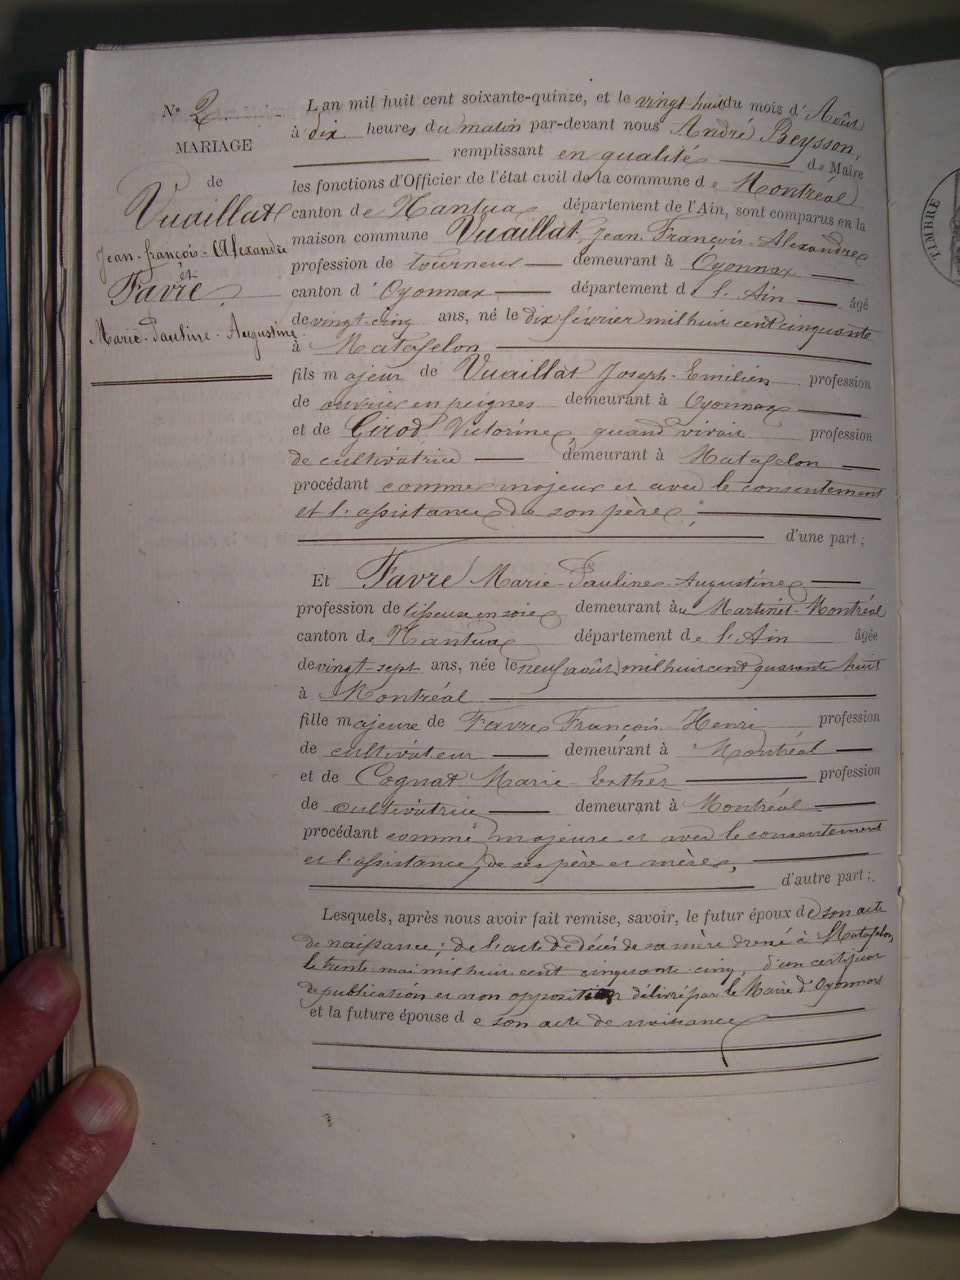 N° 2
MARIAGE
de
Vuaillat
Jean-françois-Alexandre
et
Favre
Marie-Pauline-Augustine
L'an mil huit cent soixante-quinze, et le vingt-huit du mois d'Août
à dix heures du matin par-devant nous André Beysson,
remplissant en qualité de Maire
les fonctions d'Officier de l'état civil de la commune de Montréal
canton de Nantua département de l'Ain, sont comparus en la
maison commune Vuaillat, Jean-François-Alexandre
profession de tourneur demeurant à Oyonnax
canton d'Oyonnax département de l'Ain âgé
de vingt-cinq ans, né le dix février mil huit cent cinquante
à Matafelon
fils majeur de Vuaillat Joseph-Emilien profession
de ouvrier en peignes demeurant à Oyonnax
et de Girod Victorine, quand vivait profession
de cultivatrice demeurant à Matafelon
procédant comme majeur et avec le consentement
et l'assistance de son père;
d'une part;
Et Favre Marie-Pauline-Augustine
profession de tisseuse en soie demeurant au Martinet-Montréal
canton de Nantua département de l'Ain âgée
de vingt-sept ans, née le neuf août mil huit cent quarante huit
à Montréal
fille majeure de Favre François-Henri profession
de cultivateur demeurant à Montréal
et de Cognat Marie-Esther profession
de cultivatrice demeurant à Montréal
procédant comme majeure et avec le consentement
et l'assistance de ses père et mère,
d'autre part;
Lesquels, après nous avoir fait remise, savoir, le futur époux de son acte
de naissance; de l'acte de décès de sa mère à Matafelon,
le trente mai mil huit cent cinquante-cinq, d'un certificat
de publication et non opposition délivré par le Maire d'Oyonnax
et la future épouse de son acte de naissance
TIMBRE